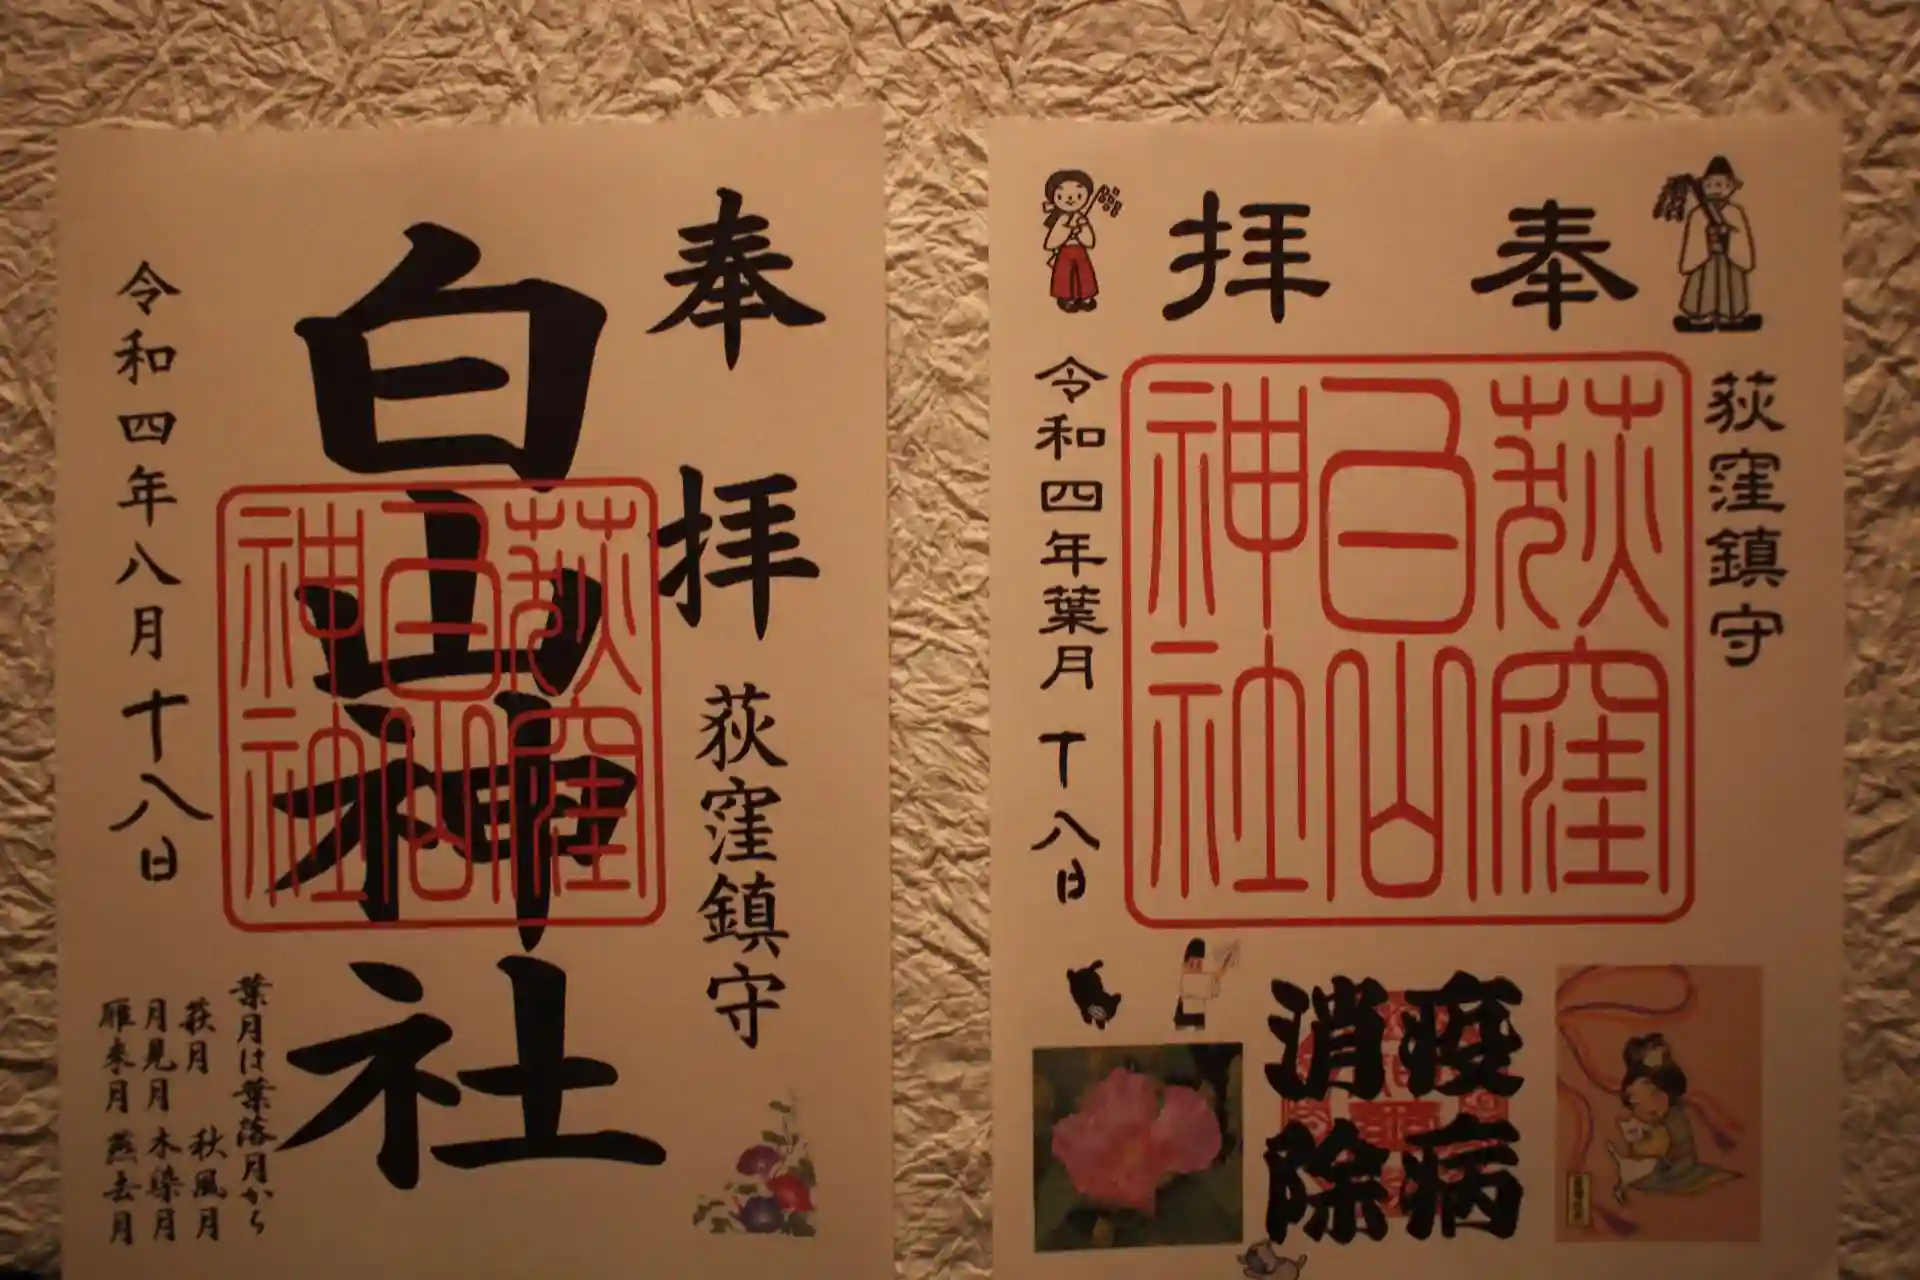 奉拝
荻窪鎮守
白山神社
荻窪
白山
神社
令和四年八月十八日
葉月は葉落月から
萩月 秋風月
月見月 木染月
雁来月 燕去月
奉 拝
荻窪鎮守
荻窪
白山
神社
令和四年葉月十八日
疫病
消除